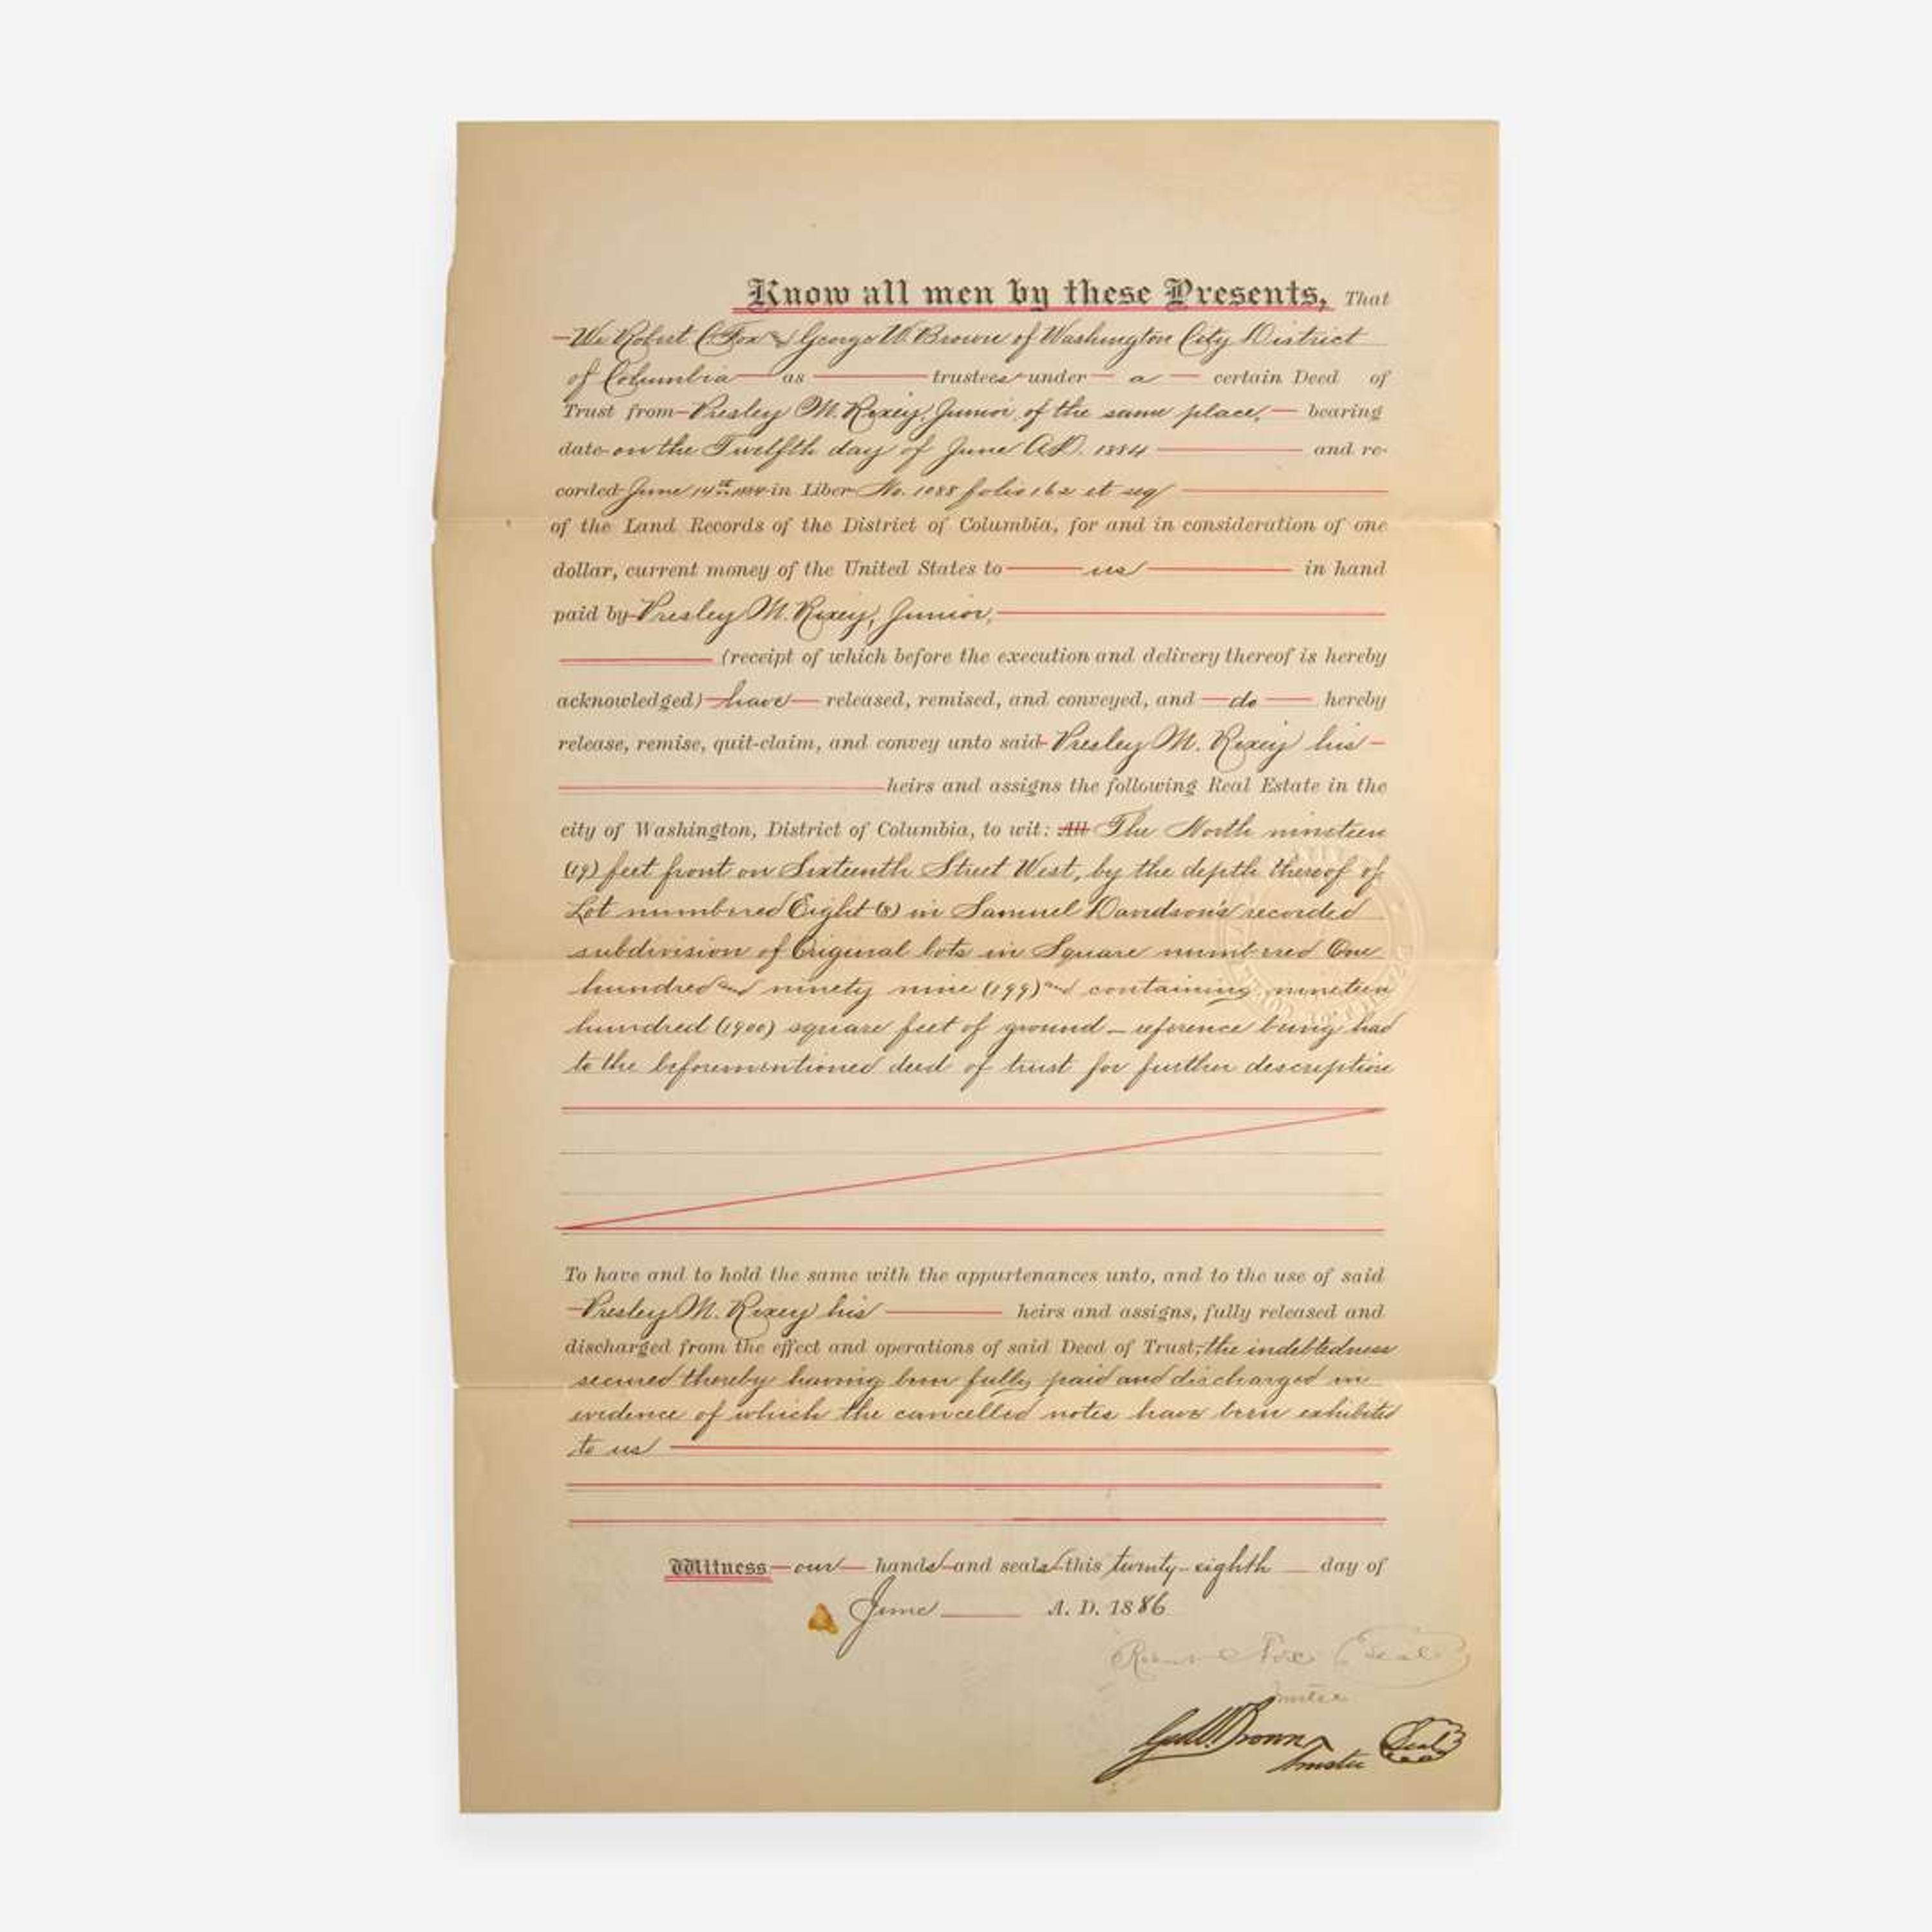 Know all men by these Presents, That
We Robert C. Fox & George W. Brown of Washington City District
of Columbia as trustees under a certain Deed of
Trust from Presley M. Rixey, Junior, of the same place, bearing
date on the Twelfth day of June A.D. 1884 and re-
corded June 14th 1884 in Liber No. 1088 folio 162 et seq
of the Land Records of the District of Columbia, for and in consideration of one
dollar, current money of the United States to us in hand
paid by Presley M. Rixey, Junior,
(receipt of which before the execution and delivery thereof is hereby
acknowledged) have released, remised, and conveyed, and do hereby
release, remise, quit-claim, and convey unto said Presley M. Rixey his
heirs and assigns the following Real Estate in the
city of Washington, District of Columbia, to wit: All The North nineteen
(19) feet front on Sixteenth Street West, by the depth thereof of
Lot numbered Eight (8) in Samuel Davidson's recorded
subdivision of Original lots in Square numbered One
hundred and ninety nine (199) and containing nineteen
hundred (1900) square feet of ground – reference being had
to the beforementioned deed of trust for further description
To have and to hold the same with the appurtenances unto, and to the use of said
Presley M. Rixey his heirs and assigns, fully released and
discharged from the effect and operations of said Deed of Trust, the indebtedness
secured thereby having been fully paid and discharged in
evidence of which the cancelled notes have been exhibited
to us
Witness our hands and seals this twenty-eighth day of
June A. D. 1886
Robert C Fox Seal
Trustee
Geo W. Brown Seal
Trustee